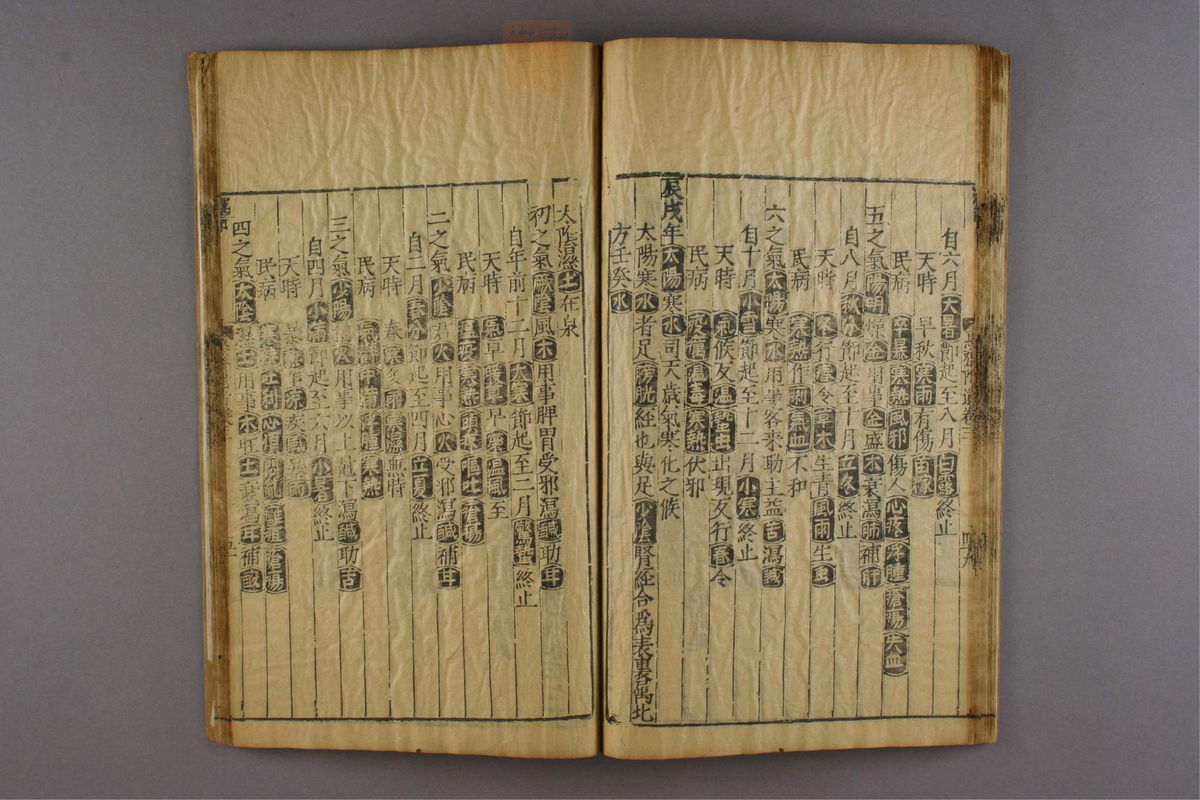 自六月大暑節起至八月白露終止
天時　早秋寒雨有傷苗稼
民病　卒暴寒熱風邪傷人心疼浮腫瘡瘍失血
五之氣陽明燥金用事金盛木衰瀉肺補肝
自八月秋分節起至十月立冬終止
天時　冬行春令草木生青風雨生虫
民病　寒熱作痢氣血不和
六之氣太陽寒水用事客來助主益苦瀉鹹
自十月小雪節起至十二月小寒終止
天時　氣候反溫蟄虫出現反行春令
民病　疫癘溫毒寒熱伏邪
辰戌年太陽寒水司天歲氣寒化之候
太陽寒水者足膀胱經也與足少陰腎經合為表裏屬北
方壬癸水
太陰濕土在泉
初之氣厥陰風木用事脾胃受邪瀉鹹助甘
自年前十二月大寒節起至二月驚蟄終止
天時　氣早暖草早榮溫風至
民病　溫疫寒熱頭疼嘔吐瘡瘍
二之氣少陰君火用事心火受邪瀉鹹補甘
自二月春分節起至四月立夏終止
天時　春寒多雨寒濕無時
民病　氣鬱中滿浮腫寒熱
三之氣少陽相火用事以上尅下瀉鹹助苦
自四月小滿節起至六月小暑終止
天時　暴熱乍涼疾風暴雨
民病　寒熱吐利心煩悶亂癰疽瘡瘍
四之氣太陰濕土用事木旺土衰瀉甘補